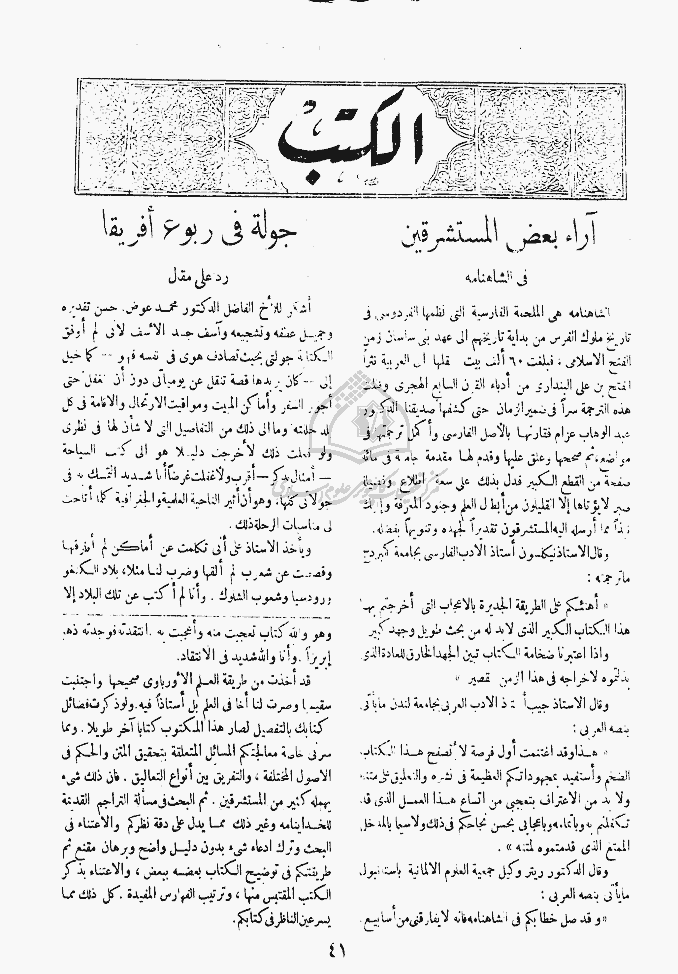 الكتب
آراء بعض المستشرقين
فى الشاهنامه
الشاهنامه هى الملحمة الفارسية التى نظمها الفردوسى فى
تاريخ ملوك الفرس من بداية تاريخهم الى عهد بنى ساسان زمن
الفتح الاسلامى ، فبلغت ٦٠ ألف بيت نقلها الى العربية نثراً
الفتح بن على البندارى من أدباء القرن السابع الهجرى وظلت
هذه الترجمة سراً فى ضمير الزمان حتى كشفها صديقنا الدكتور
عبد الوهاب عزام فقارنها بالأصل الفارسى وأكمل ترجمتها فى
مواضع، ثم صححها وعلق عليها وقدم لها مقدمة جامعة فى مائة
صفحة من القطع الكبير فدل بذلك على سعة اطلاع وفضيلة
صبر لا يؤتاها إلا القليلون من أبطال العلم وجنود المعرفة وإليك
نبذاً مما أرسله اليه المستشرقون تقديراً لجهده وتنويهاً بفضله.
وقال الاستاذ نيكلسون أستاذ الادب الفارسى بجامعة كمبردج
ماترجمته :
« أهنئكم على الطريقة الجديرة بالاعجاب التى أخرجتم بها
هذا الكتاب الكبير الذى لابد له من بحث طويل وجهد كبير
واذا اعتبرنا ضخامة الكتاب تبين الجهد الخارق للعادة الذى
بذلتموه لاخراجه فى هذا الزمن القصير »
وقال الاستاذ جيب أستاذ الادب العربى بجامعة لندن مايأتى
بنصه العربى :
« هذا وقد اغتنمت أول فرصة لأتصفح هذا الكتاب
الضخم وأستفيد بمجهوداتكم العظيمة فى نشره والتعليق على متنه
ولا بد من الاعتراف بتعجبى من اتساع هذا العمل الذى قد
تكفلتم به وباتمامه وباعجابى بحسن نجاحكم فى ذلك ولاسيما بالمدخل
الممتع الذى قدمتموه لمتنه » .
وقال الدكتور ريتر وكيل جمعية العلوم الالمانية باستانبول
مايأتى بنصه العربى :
« وقد صل خطابكم فى الشاهنامه فانه لايفارقنى من أسابيع .
جولة فى ربوع أفريقا
رد على مقال
أشكر للأخ الفاضل الدكتور محمد عوض حسن تقديره
وجميل عطفه وتشجيعه وآسف جد الأسف لانى لم أوفق
لكتابة جولتى بحيث تصادف هوى فى نفسه فهو -- كما خيل
إلى -- كان يريدها قصة تنقل عن يومياتى دون أن تغفل حتى
أجور السفر وأماكن المبيت ومواقيت الارتحال والاقامة فى كل
بلد حللته وما الى ذلك من التفاصيل التى لا شأن لها فى نظرى
ولو فعلت ذلك لأخرجت دليلا هو الى كتب السياحة
— أمثال بدكر — أقرب ولأغفلت غرضاً أنا شديد التمسك به فى
جولاتى كلها، وهو أن أثير الناحية العلمية والجغرافية كلما أتاحت
لى مناسبات الرحلة ذلك .
ويأخذ الاستاذ على أنى تكلمت عن أماكن لم أطرقها
وقصصت عن شعوب لم ألقها وضرب لنا مثلا، بلاد الكنغو
ورودسيا وشعوب الشلوك . وأنا لم أكتب عن تلك البلاد إلا
وهو والله كتاب تعجبت منه وأعجبت به . انتقدته فوجدته ذهبا
إبريزاً . وأنا والله شديد فى الانتقاد.
قد أخذت من طريقة العلم الأورباوى صحيحها واجتنبت
سقيمها وصرت لنا أخا فى العلم بل أستاذاً فيه. ولو ذكرت فضائل
كتابك بالتفصيل لصار هذا المكتوب كتابا آخر طويلا. ومما
سرنى خاصة معالجتكم المسائل المتعلقة بتحقيق المتن والحكم فى
الاصول المختلفة ، والتفريق بين أنواع التعاليق . فان ذلك شىء
يهمله كثير من المستشرقين . ثم البحث فى مسألة التراجم القديمة
للخداينامه وغير ذلك مما يدل على دقة نظركم والاعتناء فى
البحث وترك ادعاء شىء بدون دليل واضح وبرهان مقنع ثم
طريقتكم فى توضيح الكتاب بعضه ببعض ، والاعتناء بذكر
الكتب المقتبس منها ، وترتيب الفهارس المفيدة . كل ذلك مما
يسر عين الناظر فى كتابكم.
٤١